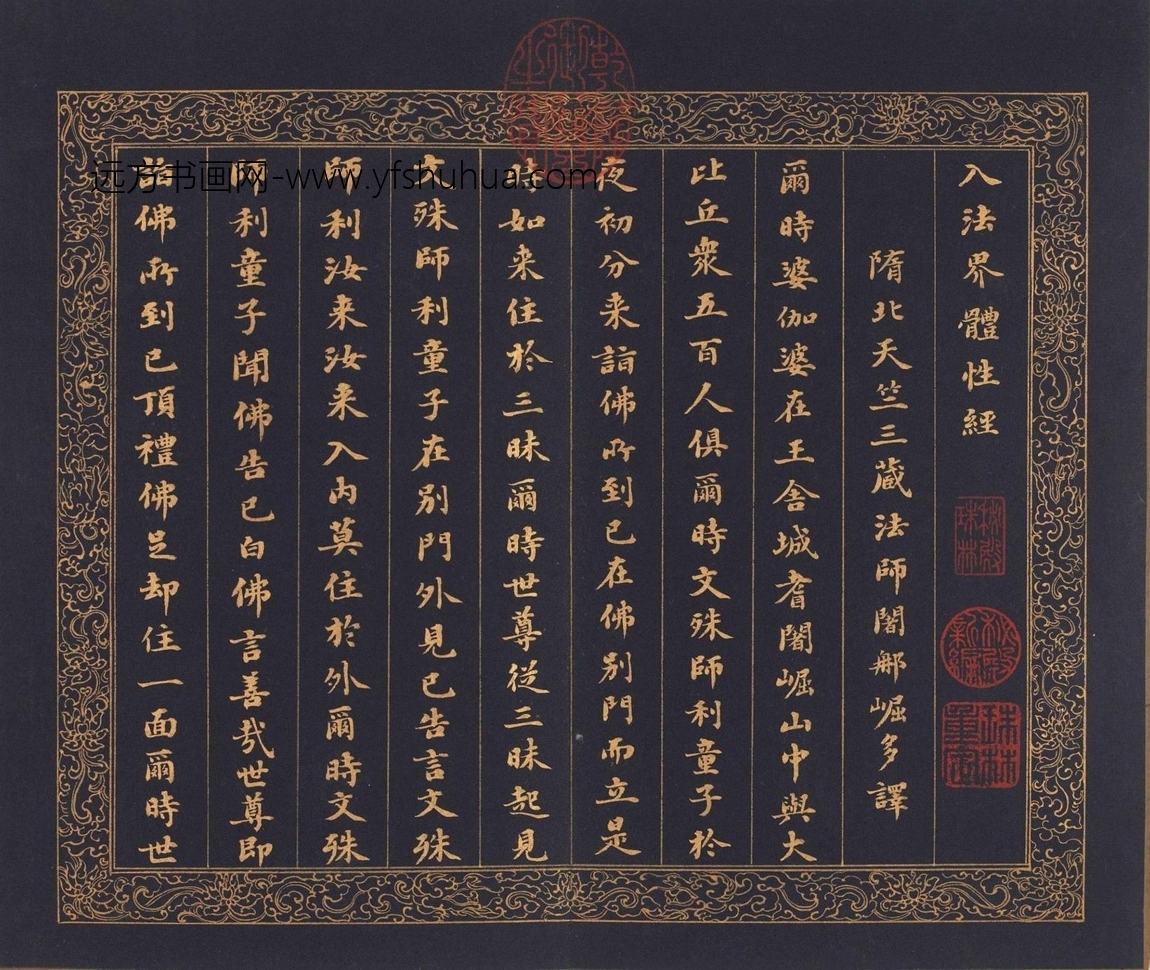 入法界體性經
隋北天竺三藏法師闍那崛多譯
爾時婆伽婆在王舍城耆闍崛山中與大
比丘衆五百人俱爾時文殊師利童子於
夜初分来詣佛所到已在佛別門而立是
時如来住於三昧爾時世尊從三昧起見
文殊師利童子在別門外見已告言文殊
師利汝来汝来入内莫住於外爾時文殊
師利童子聞佛告已白佛言善哉世尊即
詣佛所到已頂禮佛足却住一面爾時世
秘殿珠林
秘殿新編
珠林重定
远方书画网-www.yfshuhua.com